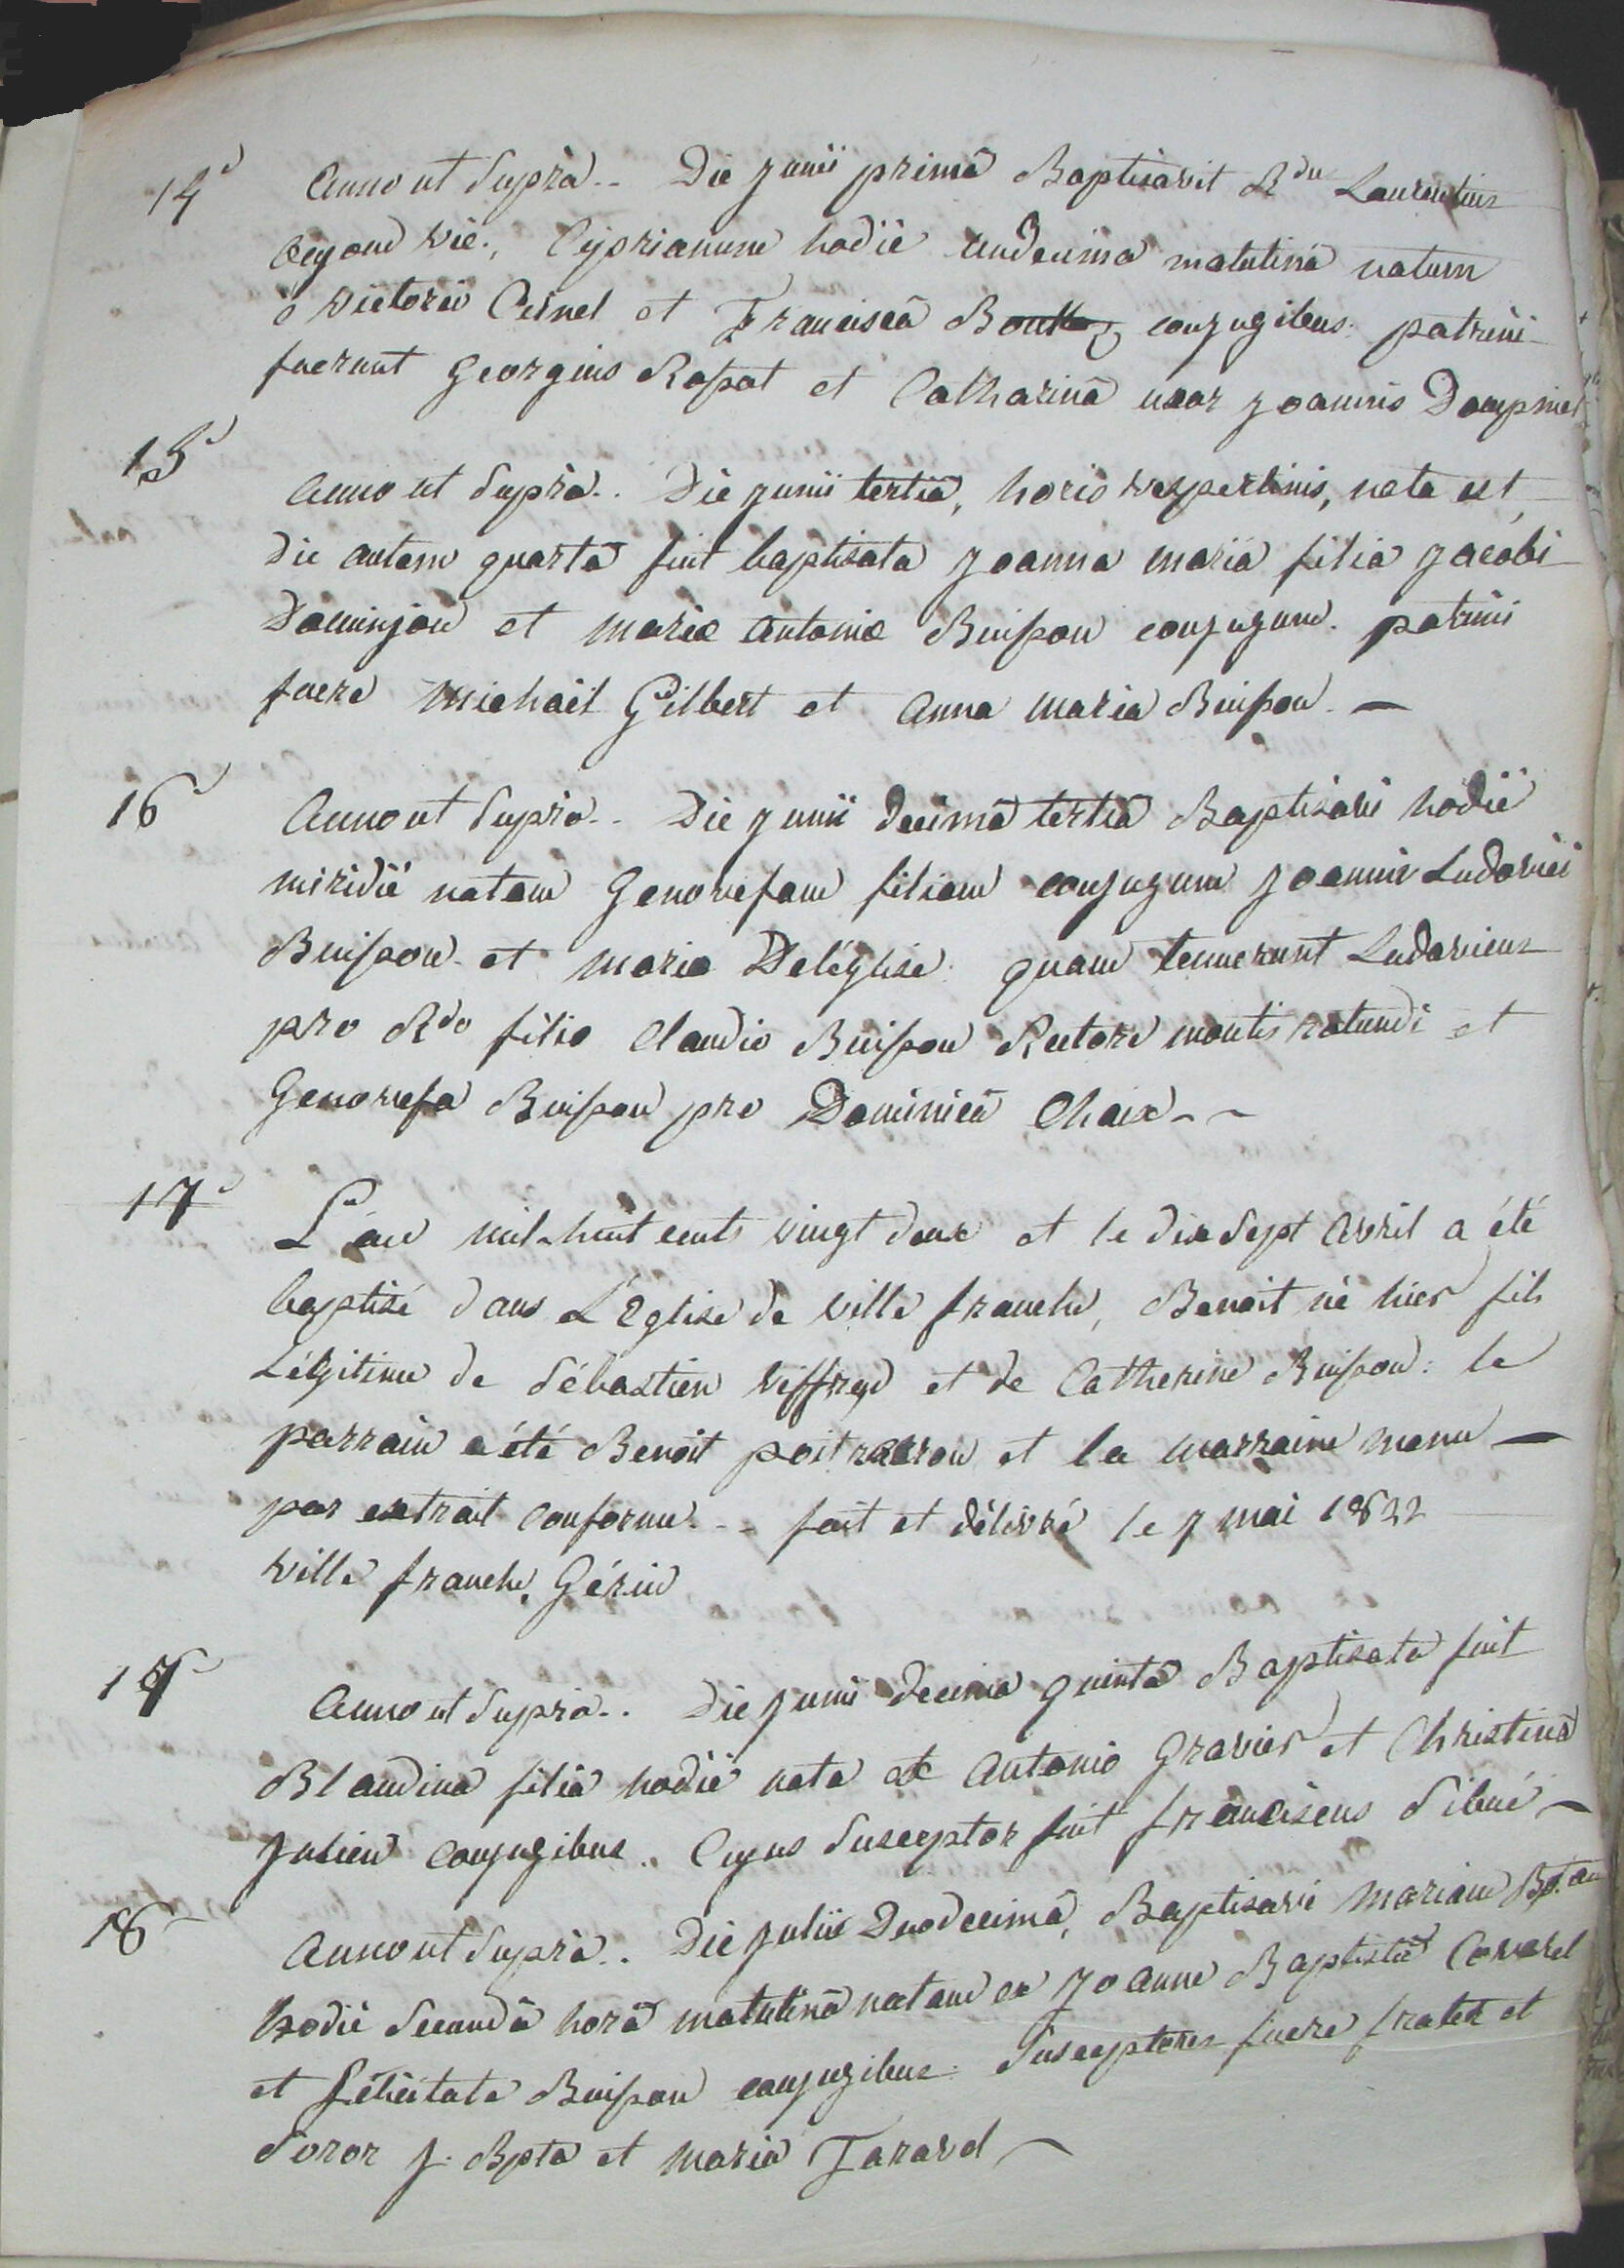 14
Anno ut Suprà.. Die junii primâ Baptisavit Rdus Laurentius
vic., Cyprianum hodiè undecima matutinâ natum
è Victorio et Franciscâ conjugibus. patrini
fuerunt Georgius Rossat et Catharina uxor joannis
15
Anno ut Suprà.. Die junii tertiâ, horis vespertinis, nata est
die autem quartâ fuit baptisata joanna maria filia jacobi
Dominjon et mariæ antoniæ Buisson conjugum. patrini
fuere Michaël Gilbert et Anna Maria Buisson. —
16
Anno ut Suprà.. Die junii decimâ tertiâ Baptisavi hodiè
miridiè natam Genovefam filiam conjugum joannis Ludovici
Buisson et mariæ Deléglise. quam tenuerunt Ludovicus
pro Rdo filio Claudio Buisson Rectore montis rotundi et
Genovefa Buisson pro Dominicâ Chaix - ~
17
L'an mil huit cents vingt deux et le dix Sept Avril a été
baptisé dans L'Eglise de ville franche, Benoit né hier fils
Légitime de Sébastien Viffrey et de Catherine Buisson: le
parrain a été Benoit et la marraine menu —
par extrait conforme. - - fait et délivré le 7 mai 1822
ville franche. Gérin
17
Anno ut Suprà.. Die junii decima quintâ Baptisata fuit
Blandina filia hodiè nata ex Antonio Gravier et Christinâ
Julien conjugibus. Cujus Susceptor fuit franciscus Sibué —
18
Anno ut Suprà.. Die julii Duodecimâ, Baptisavi Mariam Bptam
hodiè Secundâ horâ matutinâ natam ex joanne Baptistâ
et félicitate Buisson conjugibus. Susceptores fuere frater et
Soror j. Bpta et maria Tarard —